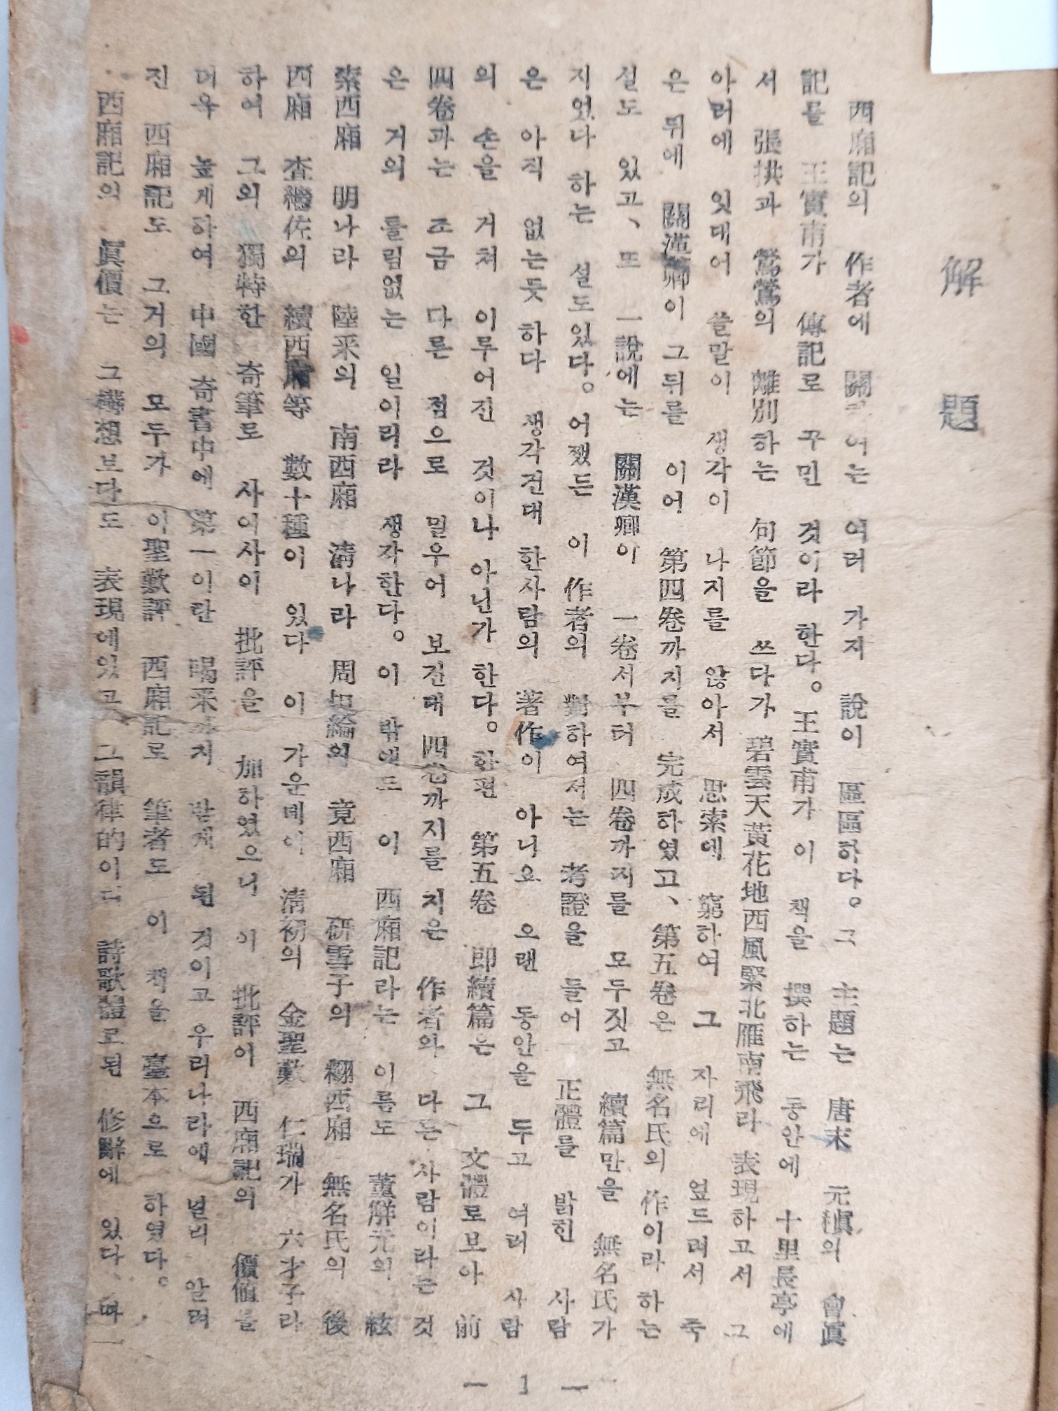 解題
西廂記의 作者에 關하여는 여러 가지 說이 區區하다。그 主題는 唐末 元稹의 會眞
記를 王實甫가 傳記로 꾸민 것이라 한다。王實甫가 이 책을 撰하는 동안에 十里長亭에
서 張珙과 鶯鶯의 離別하는 句節을 쓰다가 碧雲天黃花地西風緊北雁南飛라 表現하고서 그
아래에 잇대어 쓸말이 생각이 나지를 않아서 思索에 窮하여 그 자리에 엎드려서 죽
은 뒤에 關漢卿이 그뒤를 이어 第四卷까지를 完成하였고、第五卷은 無名氏의 作이라 하는
설도 있고、또 一說에는 關漢卿이 一卷서부터 四卷까지를 모두짓고 續篇만을 無名氏가
지었다 하는 설도있다。어쨌든 이 作者의 對하여서는 考證을 들어 正體를 밝힌 사람
은 아직 없는듯 하다 생각컨대 한사람의 著作이 아니요 으랜 동안을 두고 여러 사람
의 손을 거쳐 이루어진 것이나 아닌가 한다。한편 第五卷 即續篇은 그 文體로보아 前
四卷과는 조금 다른 점으로 밀우어 보건대 四卷까지를 지은 作者와 다른 사람이라는 것
은 거의 틀림없는 일이리라 생각한다。이 밖에도 이 西廂記라는 이름도 董解元의 絃
索西廂 明나라 陸采의 南西廂 淸나라 周坦綸의 竟西廂 硏雪子의 翻西廂 無名氏의 後
西廂 査繼佐의 續西廂等 數十種이 있다 이 가운데에 淸初의 金聖歎 仁瑞가 六才子라
하여 그의 獨特한 奇筆로 사이사이 批評을 加하였으니 이 批評이 西廂記의 價値를
더욱 높게하여 中國 奇書中에 第一이란 喝采까지 받게 된 것이고 우리나라에 널리 알려
진 西廂記도 그거의 모두가 이聖歎評 西廂記로 筆者도 이 책을 臺本으로 하였다。
西廂記의 眞價는 그構想보다도 表現에있고 그韻律的이며 詩歌體로된 修辭에 있다
— 1 —